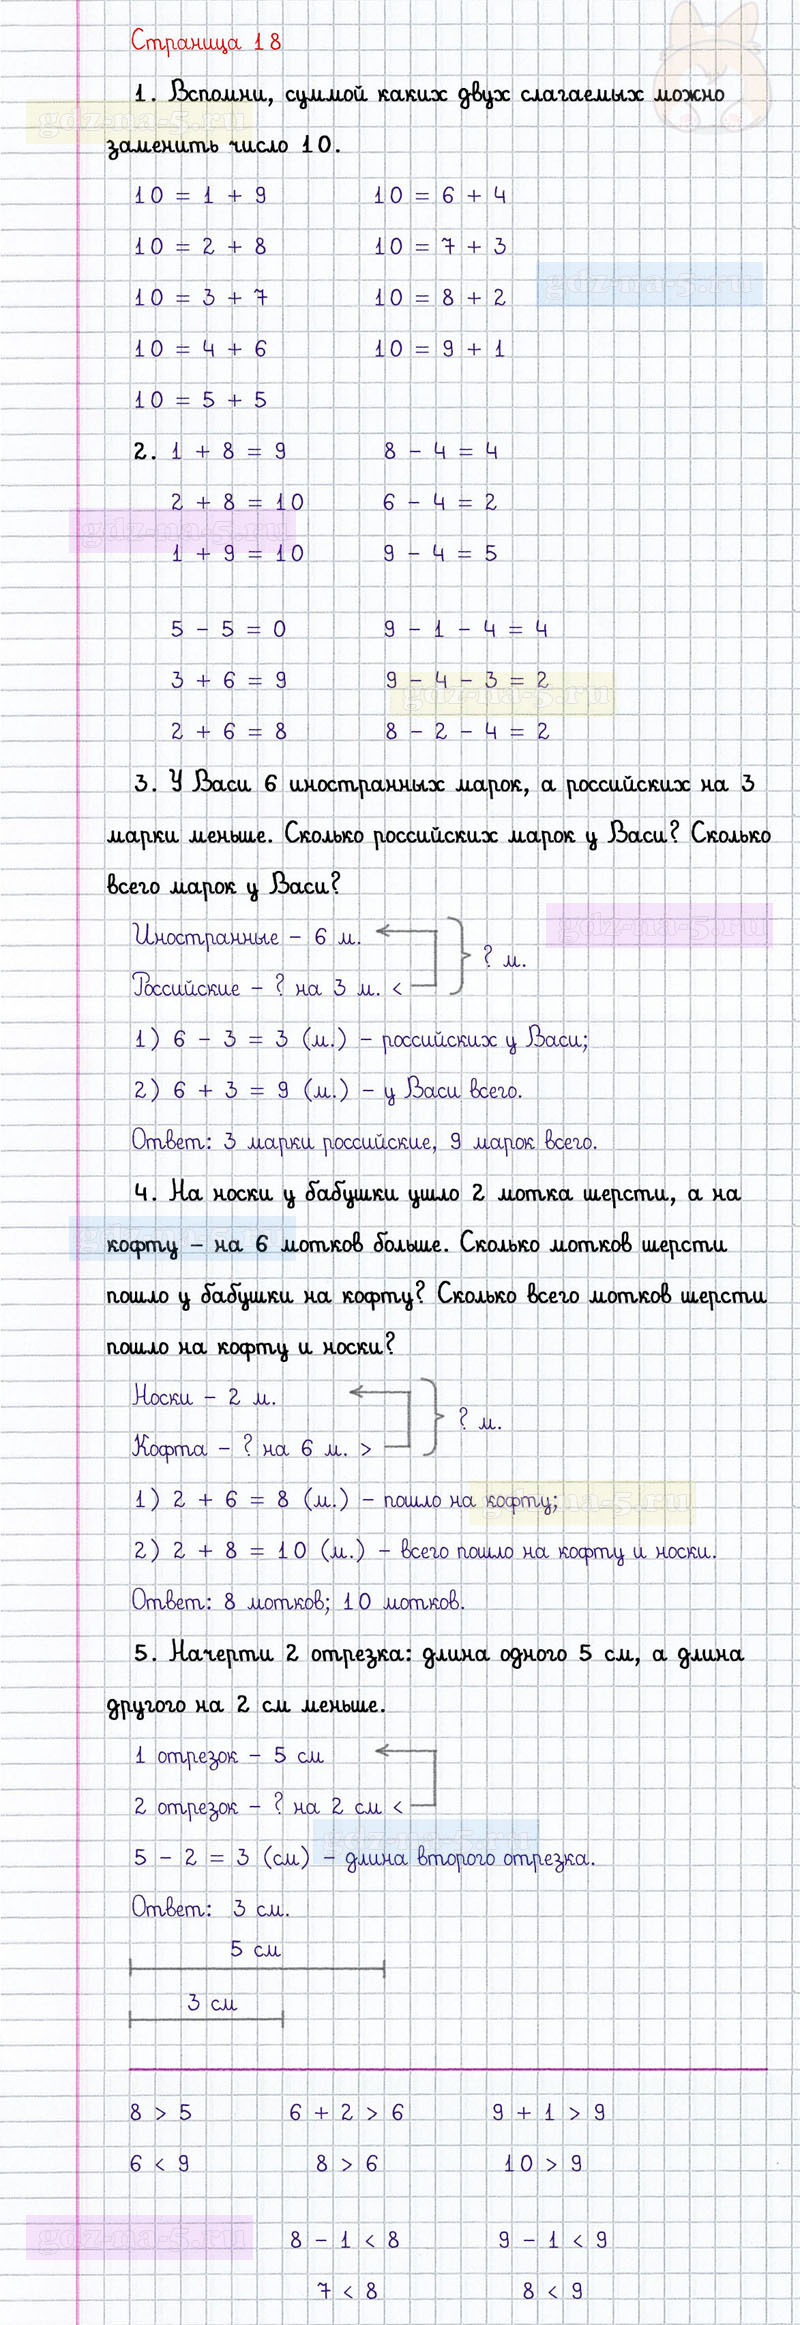 Страница 18
1. Вспомни, суммой каких двух слагаемых можно
gdz-na-5.ru
заменить число 10.
10 = 1 + 9 10 = 6 + 4
10 = 2 + 8 10 = 7 + 3
gdz-na-5.ru
10 = 3 + 7 10 = 8 + 2
10 = 4 + 6 10 = 9 + 1
10 = 5 + 5
2. 1 + 8 = 9 8 - 4 = 4
2 + 8 = 10 6 - 4 = 2
gdz-na-5.ru
1 + 9 = 10 9 - 4 = 5
5 - 5 = 0 9 - 1 - 4 = 4
3 + 6 = 9 9 - 4 - 3 = 2
gdz-na-5.ru
2 + 6 = 8 8 - 2 - 4 = 2
3. У Васи 6 иностранных марок, а российских на 3
марки меньше. Сколько российских марок у Васи? Сколько
всего марок у Васи?
gdz-na-5.ru
Иностранные – 6 м.
? м.
Российские – ? на 3 м. <
1) 6 - 3 = 3 (м.) – российских у Васи;
2) 6 + 3 = 9 (м.) – у Васи всего.
Ответ: 3 марки российские, 9 марок всего.
4. На носки у бабушки ушло 2 мотка шерсти, а на
gdz-na-5.ru
кофту – на 6 мотков больше. Сколько мотков шерсти
пошло у бабушки на кофту? Сколько всего мотков шерсти
пошло на кофту и носки?
Носки – 2 м.
? м.
Кофта – ? на 6 м. >
1) 2 + 6 = 8 (м.) – пошло на кофту;
gdz-na-5.ru
2) 2 + 8 = 10 (м.) – всего пошло на кофту и носки.
Ответ: 8 мотков; 10 мотков.
5. Начерти 2 отрезка: длина одного 5 см, а длина
другого на 2 см меньше.
1 отрезок – 5 см
2 отрезок – ? на 2 см <
gdz-na-5.ru
5 - 2 = 3 (см) – длина второго отрезка.
Ответ: 3 см.
5 см
3 см
8 > 5 6 + 2 > 6 9 + 1 > 9
6 < 9 8 > 6 10 > 9
gdz-na-5.ru
8 - 1 < 8 9 - 1 < 9
7 < 8 8 < 9